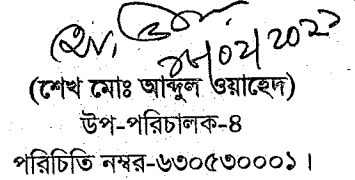 (শেখ মোঃ আব্দুল ওয়াহেদ)
উপ-পরিচালক-৪
পরিচিতি নম্বর-৬৩০৫৩০০০১।